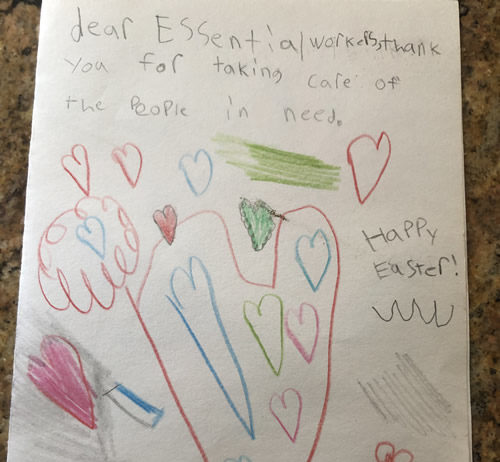 dear Essential workers, thank
you for taking care of
the people in need.
Happy
Easter!